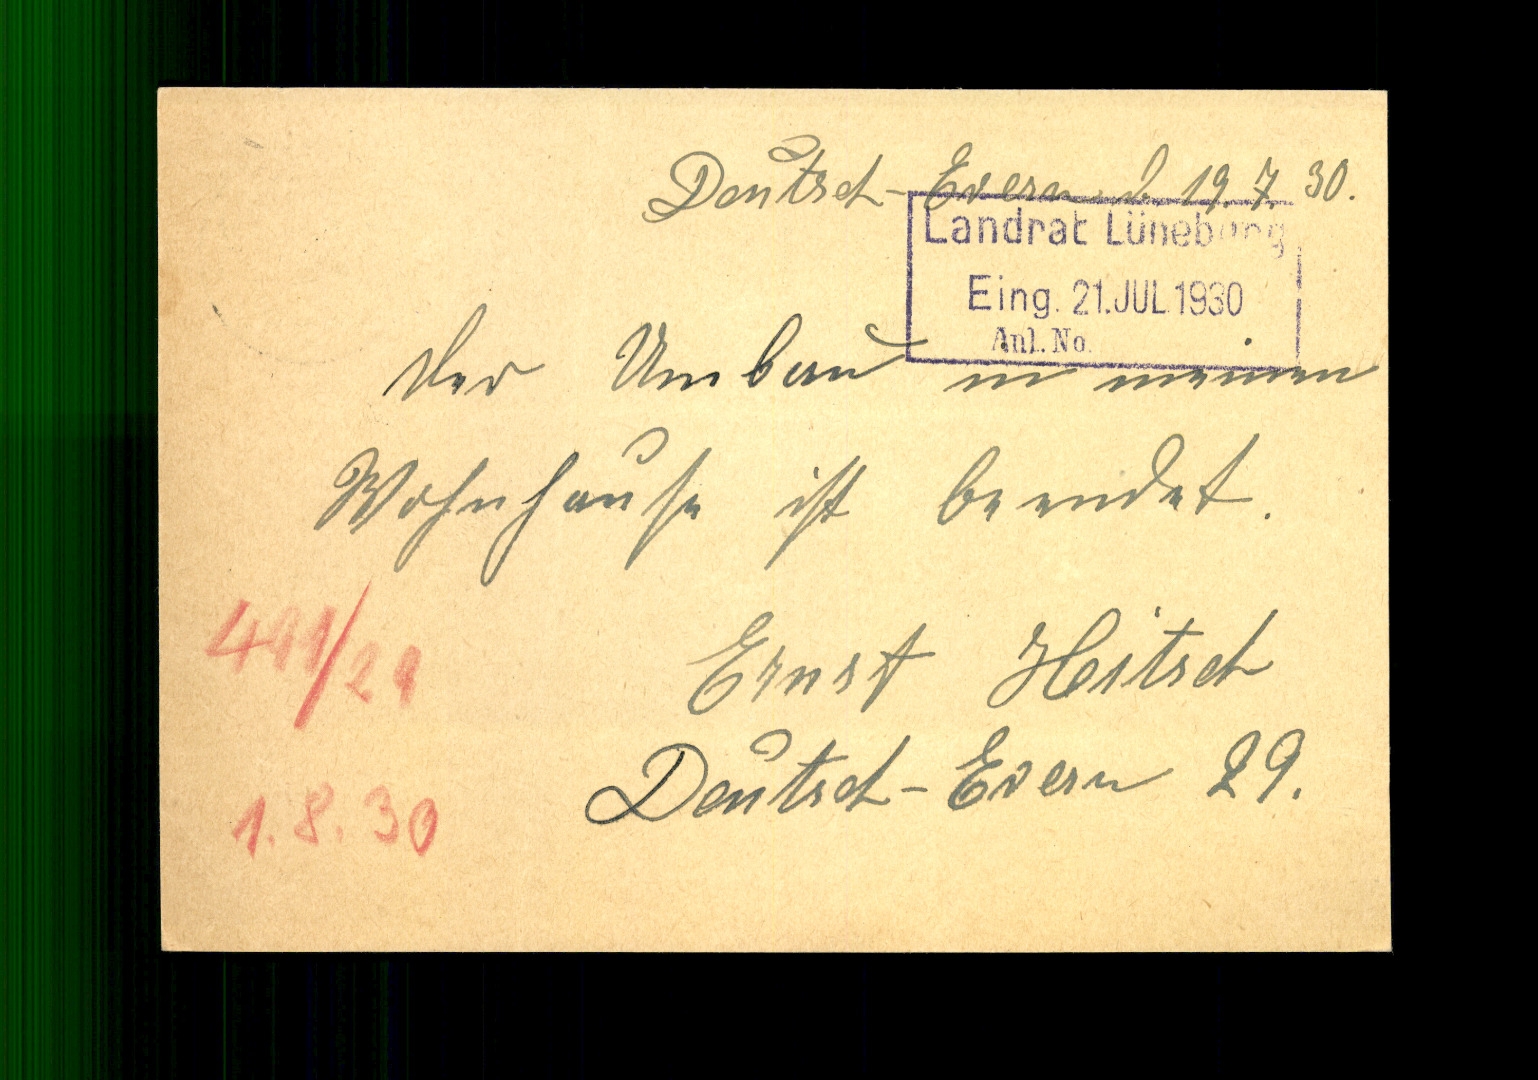 Deutsch-Evern d. 19.7.30.
Landrat Lüneburg
Eing. 21.JUL.1930
Anl. No.
Der Umbau in meinen
Wohnhause ist beendet.
Ernst Heitsch
Deutsch-Evern 29.
491/29
1.8.30